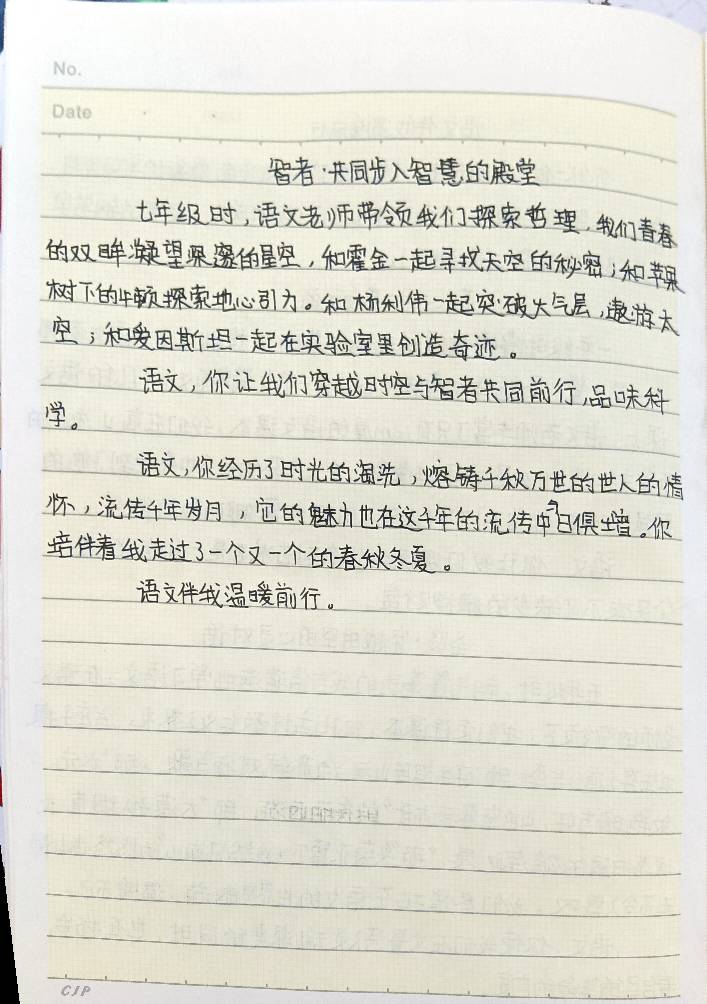 No.
Date
智者·共同步入智慧的殿堂
七年级时,语文老师带领我们探索哲理,我们青春
的双眸凝望深邃的星空,和霍金一起寻找天空的秘密;和苹果
树下的牛顿探索地心引力。和杨利伟一起突破大气层,遨游太
空;和爱因斯坦一起在实验室里创造奇迹。
语文,你让我们穿越时空与智者共同前行,品味科
学。
语文,你经历了时光的洗,熔铸千秋万世的世人的情
怀,流传千年岁月,它的魅力也在这千年的流传中与日俱增。你
陪伴着我走过了一个又一个的春秋冬夏。
语文伴我温暖前行。
CJP